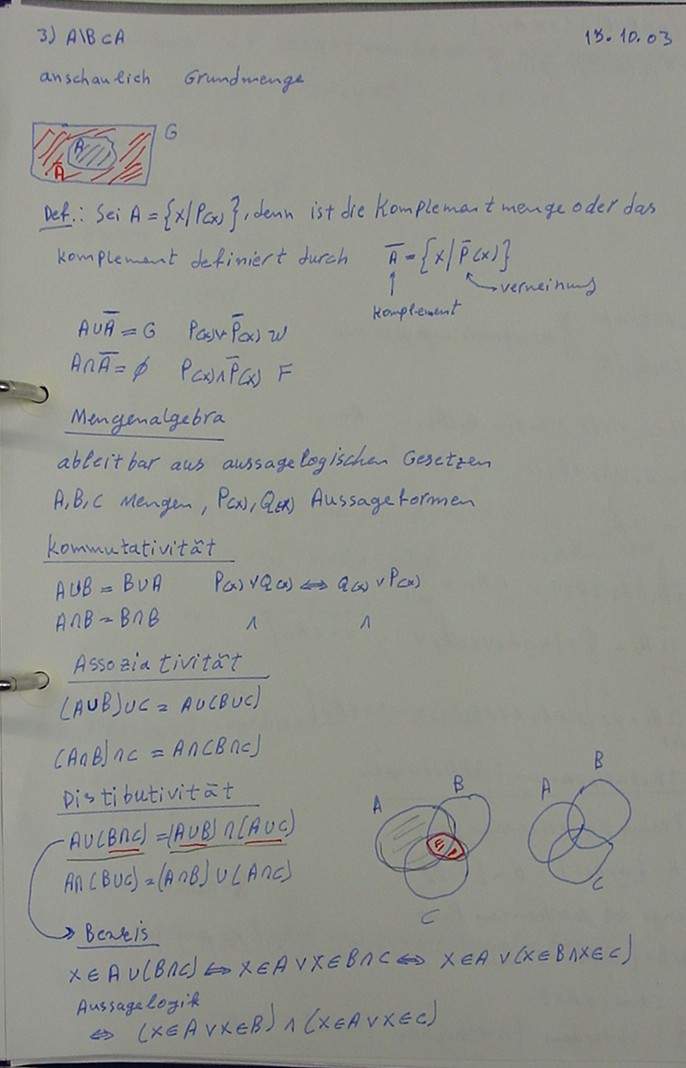 3) A\B ⊂ A 15.10.03
anschaulich Grundmenge
A G
Ā
Def.: Sei A = {x/P(x)}, denn ist die Komplementmenge oder das
Komplement definiert durch Ā = {x/P̄(x)}
verneinung
Komplement
A∪Ā = G P(x)∨P̄(x) W
A∩Ā = ∅ P(x)∧P̄(x) F
Mengenalgebra
ableitbar aus aussagelogischen Gesetzen
A,B,C Mengen, P(x), Q(x) Aussageformen
Kommutativität
A∪B = B∪A P(x)∨Q(x) ⇔ Q(x)∨P(x)
A∩B = B∩B ∧ ∧
Assoziativität
(A∪B)∪C = A∪(B∪C)
(A∩B)∩C = A∩(B∩C)
Distibutivität
A B A B
A∪(B∩C) = (A∪B)∩(A∪C)
A∩(B∪C) = (A∩B)∪(A∩C)
C C
Beweis
x∈A∪(B∩C) ⇔ x∈A ∨ x∈B∩C ⇔ x∈A ∨ (x∈B∧x∈C)
Aussagelogik
⇔ (x∈A∨x∈B) ∧ (x∈A∨x∈C)